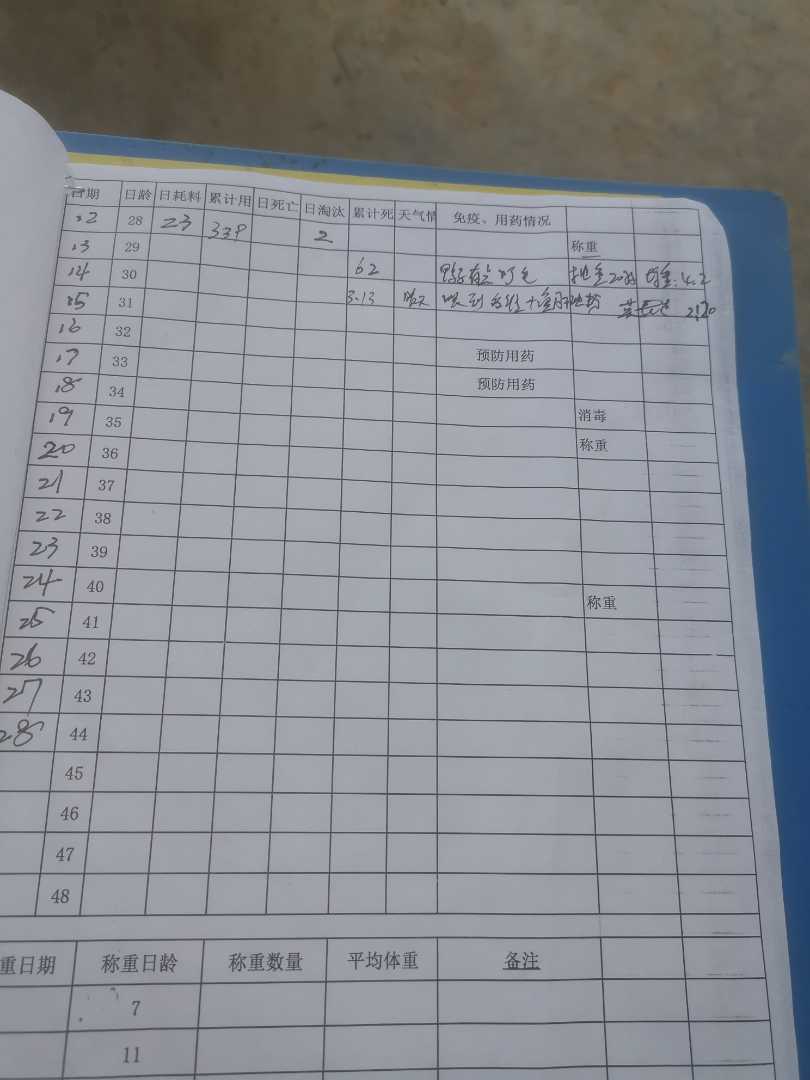 日期 日龄 日耗料 累计用 日死亡 日淘汰 累计死 天气情 免疫、用药情况
12 28 23 339 2
13 29 称重
14 30 62
15 31
16 32
17 33 预防用药
18 34 预防用药
19 35 消毒
20 36 称重
21 37
22 38
23 39
24 40
25 41 称重
26 42
27 43
28 44
45
46
47
48
重日期 称重日龄 称重数量 平均体重 备注
7
11